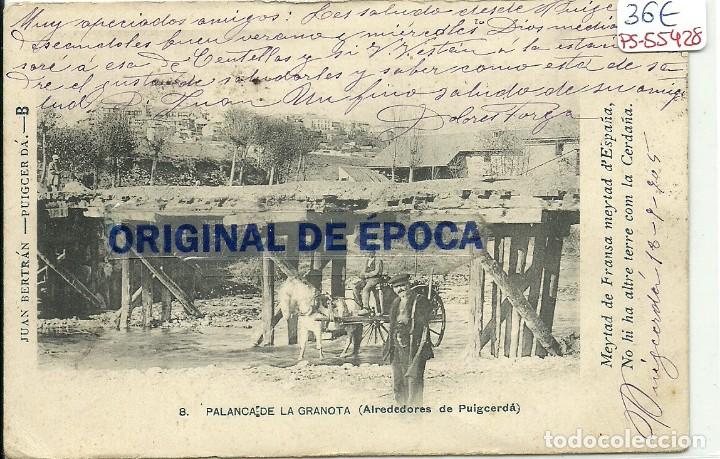 Muy apreciados amigos: Les saludo desde Puigc
descandoles buen verano y miercoles Dios media
saré a esa de Centellas y si V. están a la estac
dre el gusto de saludarles y saber como está de sa
lud D. Juan Un fino saludo de su amig
Dolores
36€
PS-55428
JUAN BERTRÁN — PUIGCERDÁ. — B
ORIGINAL DE ÉPOCA
Meytad de Fransa meytad d'España,
No hi ha altre terre com la Cerdaña.
Puigcerdá 18-9-905
8. PALANCA DE LA GRANOTA (Alrededores de Puigcerdá)
todocoleccion.net